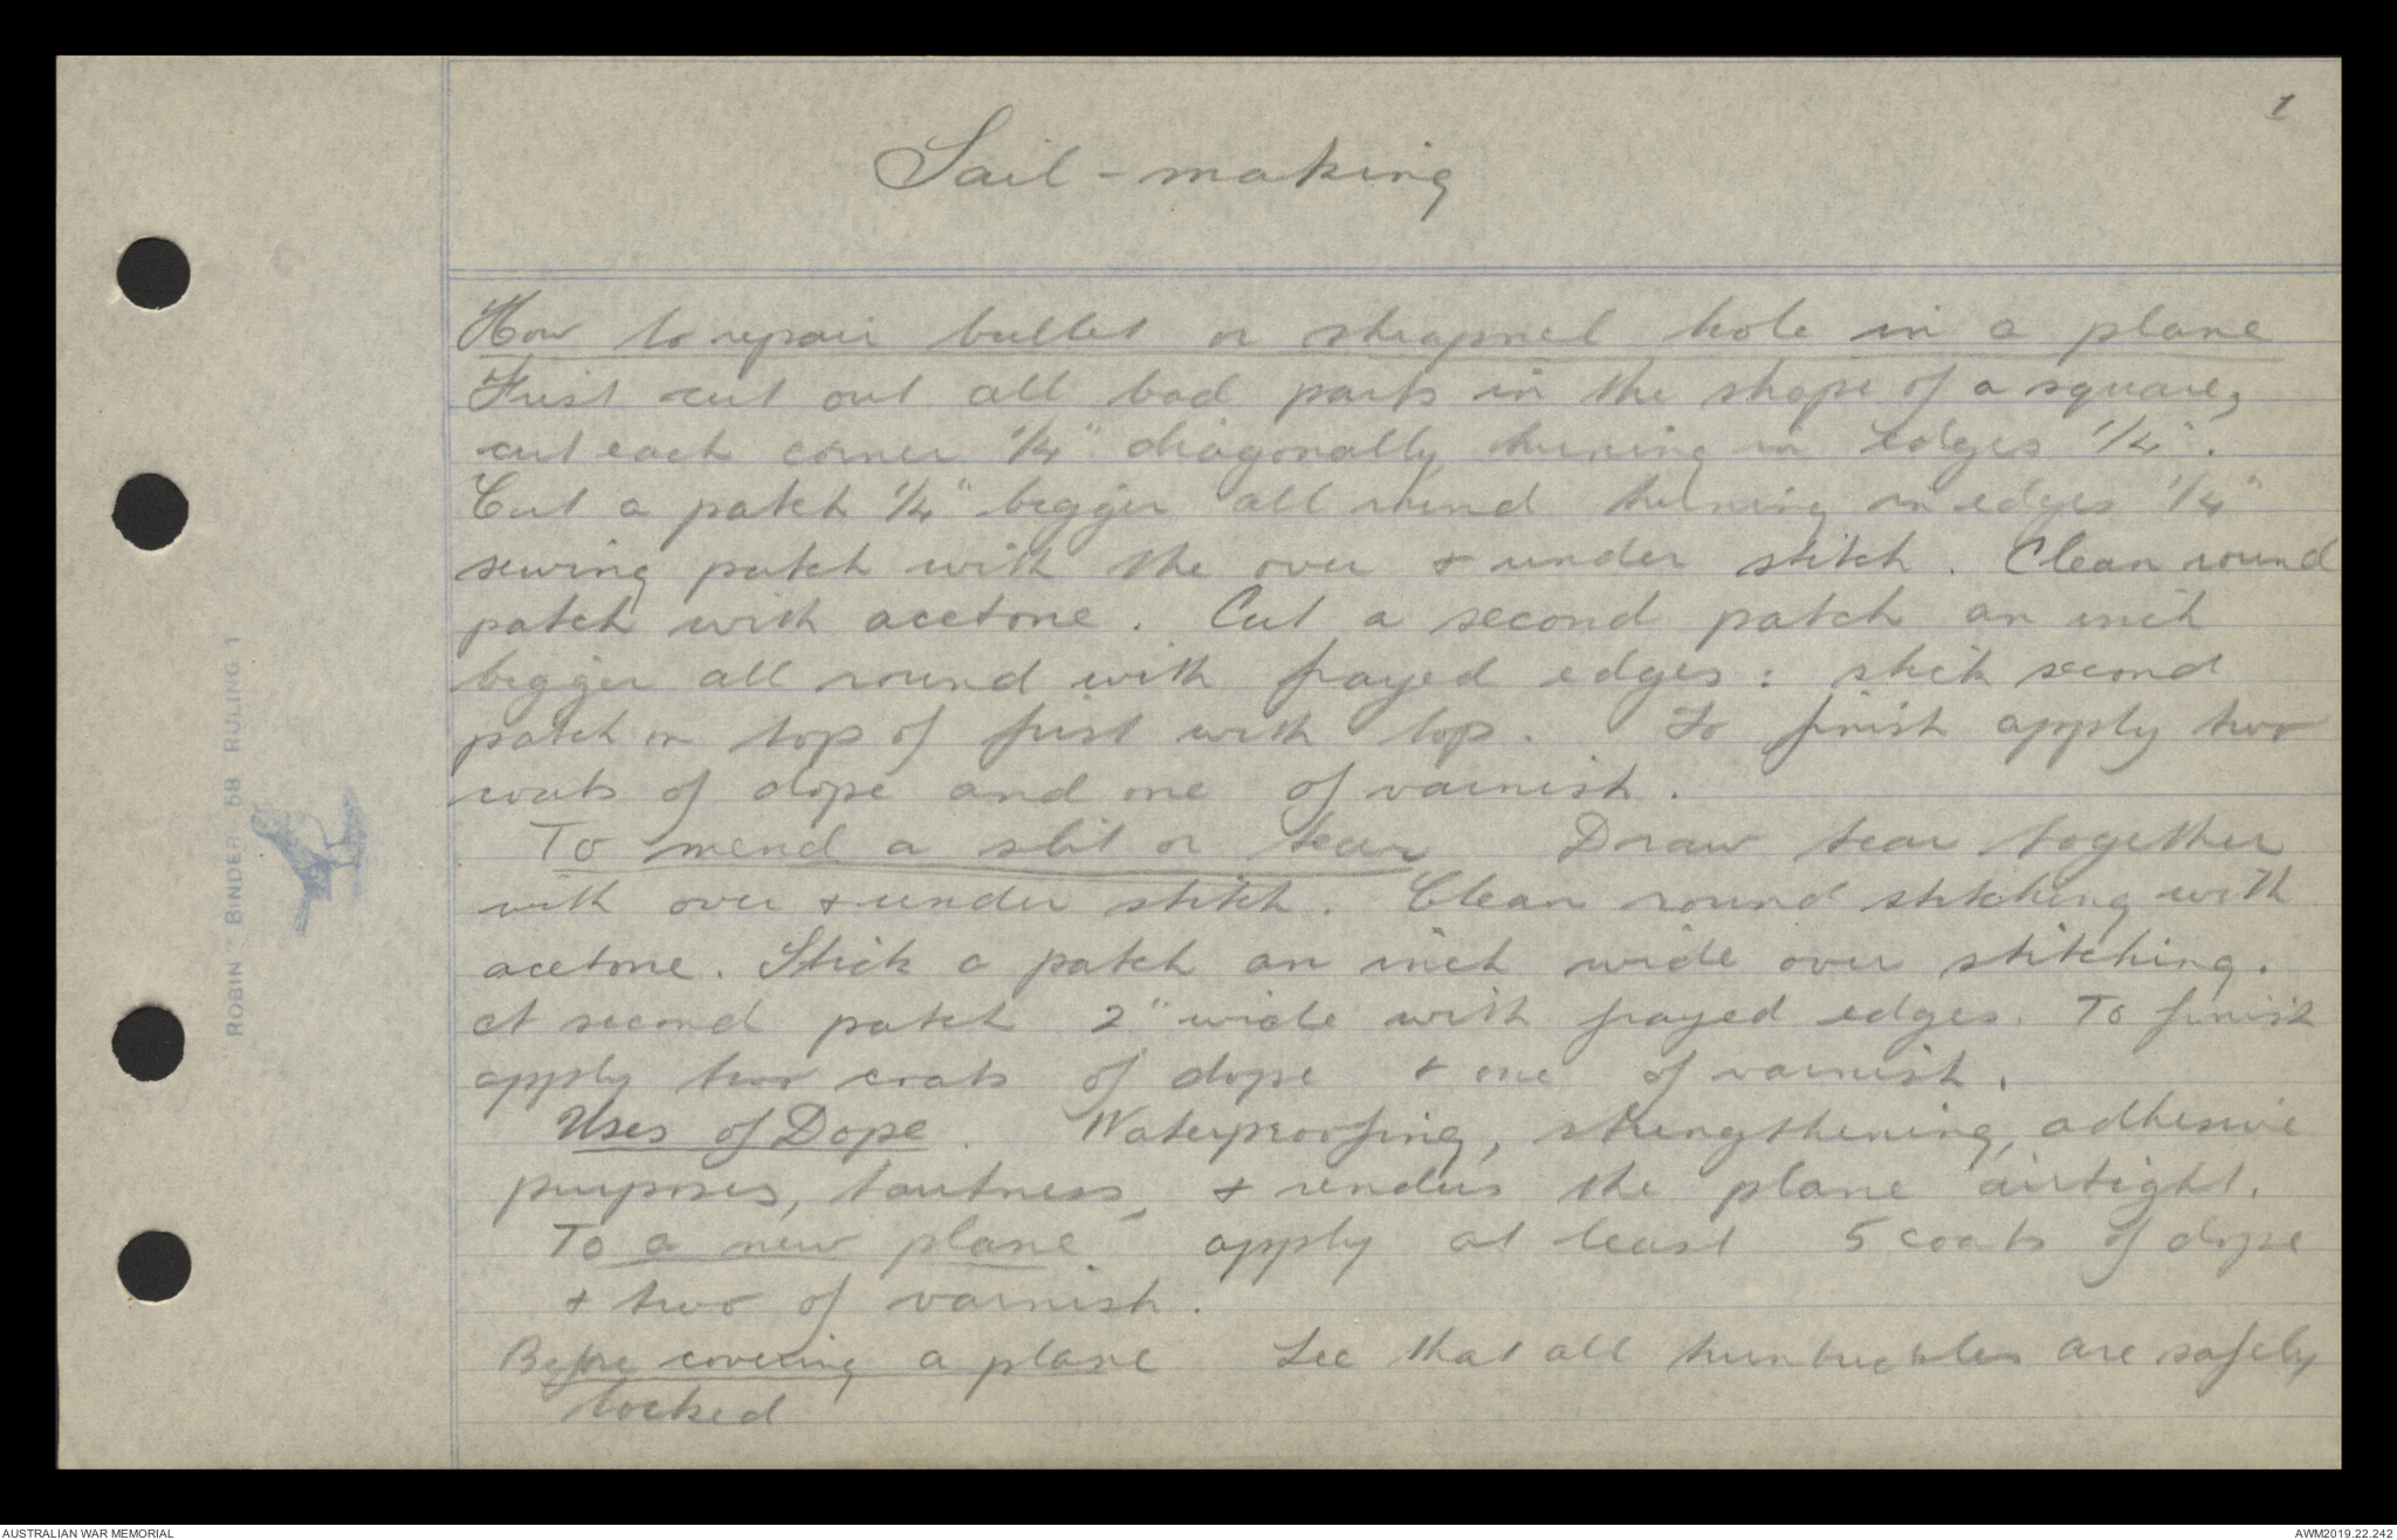 1
Sail - making
How to repair bullet or shrapnel hole in a plane
First cut out all bad parts in the shape of a square,
cut each corner 1/4" diagonally turning in edges 1/4".
Cut a patch 1/4" bigger all round turning in edges 1/4"
sewing patch with the over & under stitch. Clean round
patch with acetone. Cut a second patch an inch
bigger all round with frayed edges: stick second
patch on top of first with top. To finish apply two
coats of dope and one of varnish.
To mend a slit or tear Draw tear together
with over & under stitch. Clean round stitching with
acetone. Stick a patch an inch wide over stitching.
A second patch 2" wide with frayed edges. To finish
apply two coats of dope & one of varnish.
Uses of Dope. Waterproofing, strengthening, adhesive
purposes, tautness, & renders the plane airtight.
To a new plane apply at least 5 coats of dope
& two of varnish.
Before covering a plane See that all turnbuckles are safely
locked
ROBIN BINDER 5B RULING 1
AUSTRALIAN WAR MEMORIAL
AWM2019.22.242